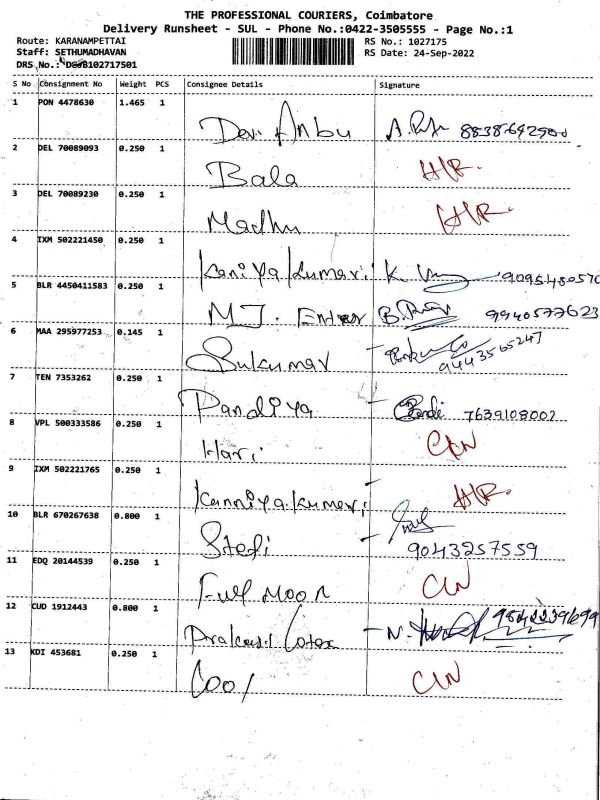 THE PROFESSIONAL COURIERS, Coimbatore
Delivery Runsheet - SUL - Phone No.:0422-3505555 - Page No.:1
Route: KARANAMPETTAI RS No.: 1027175
Staff: SETHUMADHAVAN RS Date: 24-Sep-2022
DRS No.: DSUB102717501
S No Consignment No Weight PCS Consignee Details Signature
1 PON 4478630 1.465 1
Devi Anbu
2 DEL 70089093 0.250 1
Bala H/R.
3 DEL 70089230 0.250 1
Madhu H/R.
4 IXM 502221450 0.250 1
Kaniya Kumari K. 9095480570
5 BLR 4450411583 0.250 1
M.J. Enter B. 9940577623
6 MAA 295977253 0.145 1
Sukumar 9443565247
7 TEN 7353262 0.250 1
Pandiya Pandi 7639108002
8 VPL 500333586 0.250 1
Hari
9 IXM 502221765 0.250 1
Kanniya Kumari H/R.
10 BLR 670267638 0.800 1
Stefi
9043257559
11 EDQ 20144539 0.250 1
Full Moon C/N
12 CUD 1912443 0.800 1
Prakash Cotex N.
13 KDI 453681 0.250 1
Cool C/N